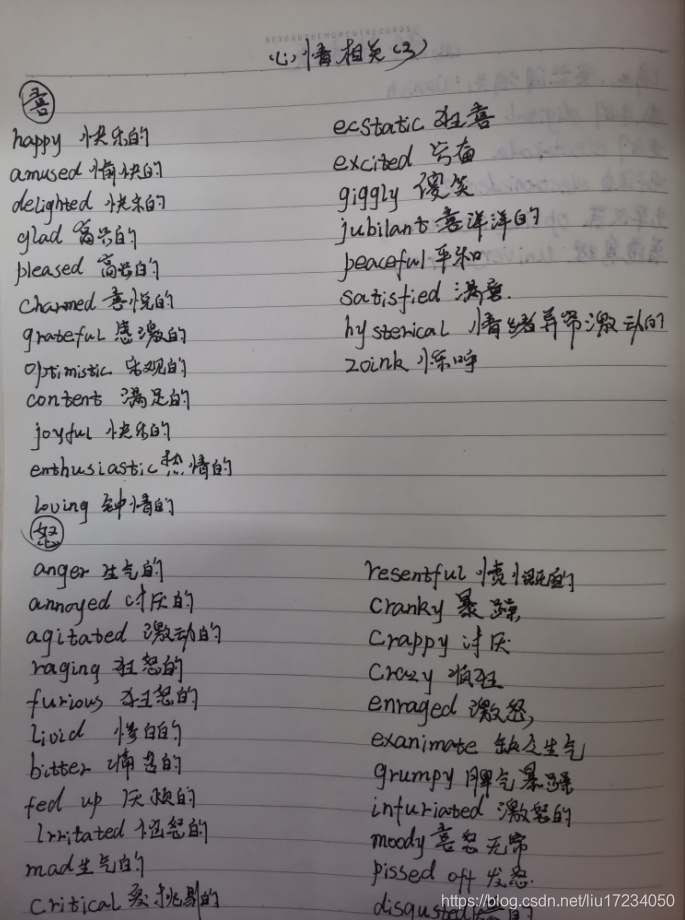 BEYONDTHEMOMENTRECORDS
心情相关(3)
喜
happy 快乐的
amused 愉快的
delighted 快乐的
glad 高兴的
pleased 高兴的
charmed 喜悦的
grateful 感激的
optimistic 乐观的
content 满足的
joyful 快乐的
enthusiastic 热情的
loving 钟情的
ecstatic 狂喜
excited 兴奋
giggly 傻笑
jubilant 喜洋洋的
peaceful 平和
satisfied 满意.
hysterical 情绪异常激动的
zoink 惊呼
怒
anger 生气的
annoyed 讨厌的
agitated 激动的
raging 狂怒的
furious 狂怒的
livid 惨白的
bitter 痛苦的
fed up 厌烦的
Irritated 恼怒的
mad 生气的
critical 爱挑剔的
resentful 愤慨的
cranky 暴躁
Crappy 讨厌
Crazy 疯狂
enraged 激怒,
exanimate 缺乏生气
grumpy 脾气暴躁
infuriated 激怒的
moody 喜怒无常
pissed off 发怒.
disgusted
https://blog.csdn.net/liu17234050